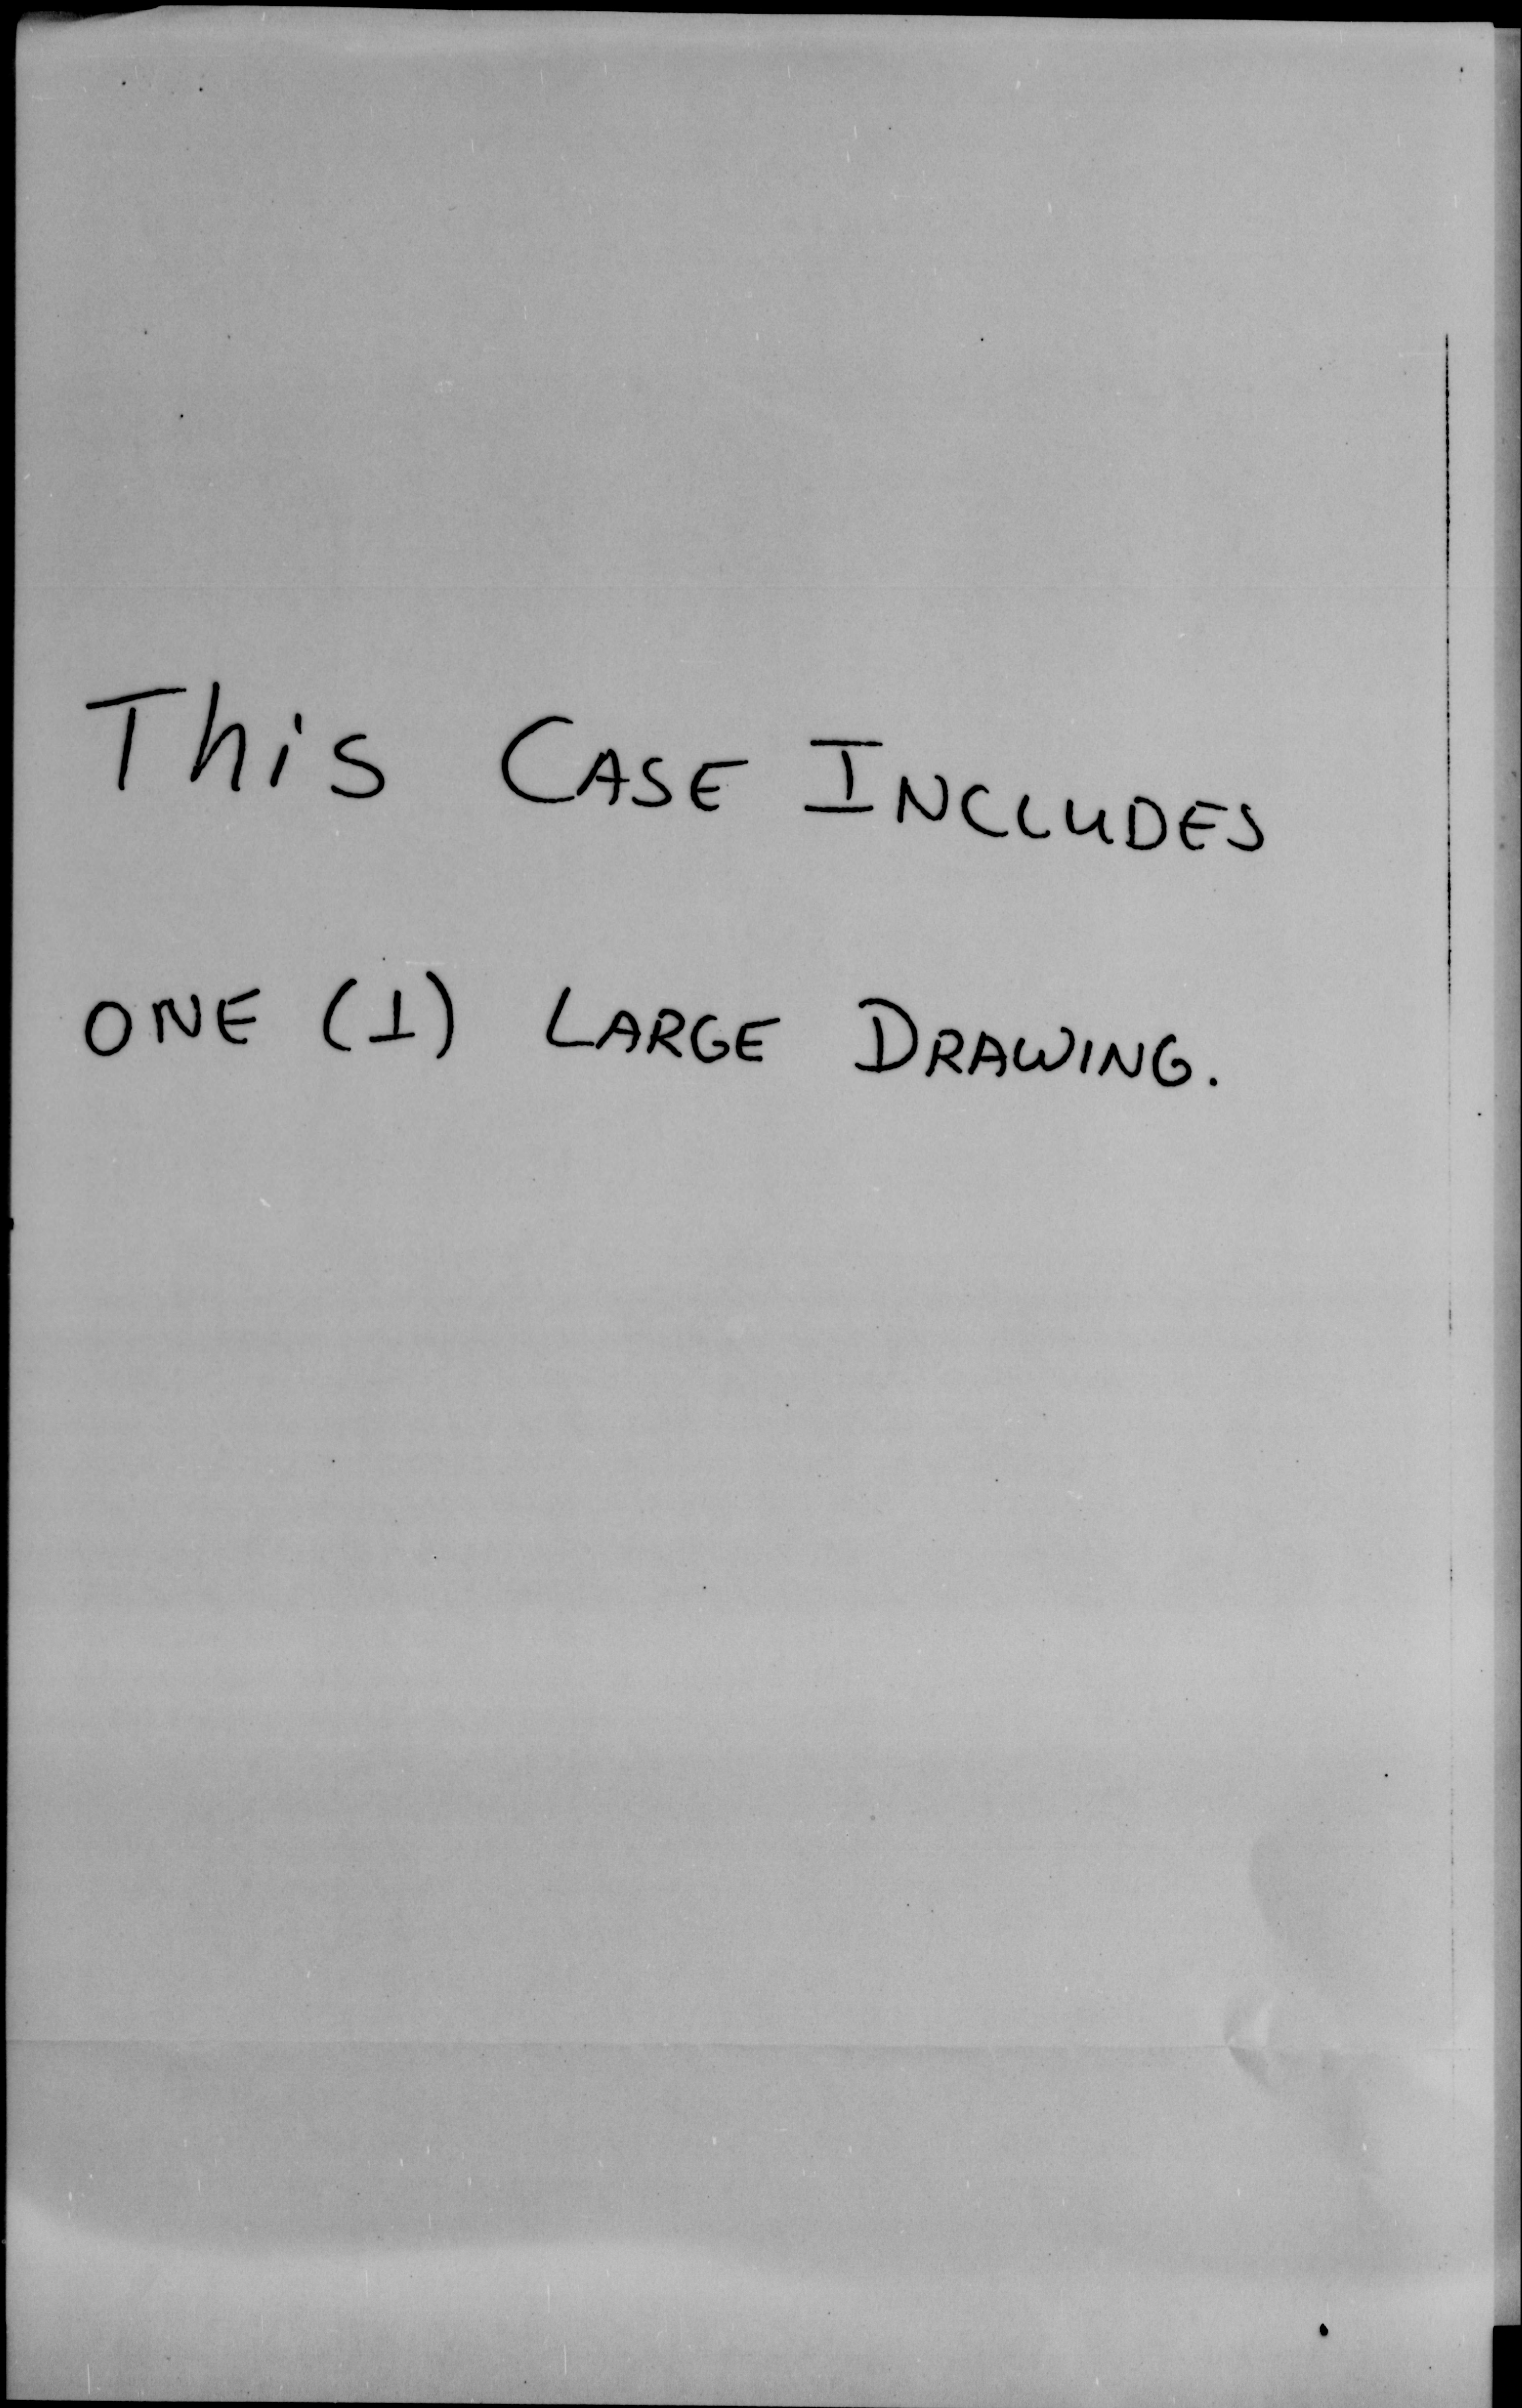 This CASE INCLUDES
ONE (1) LARGE DRAWING.